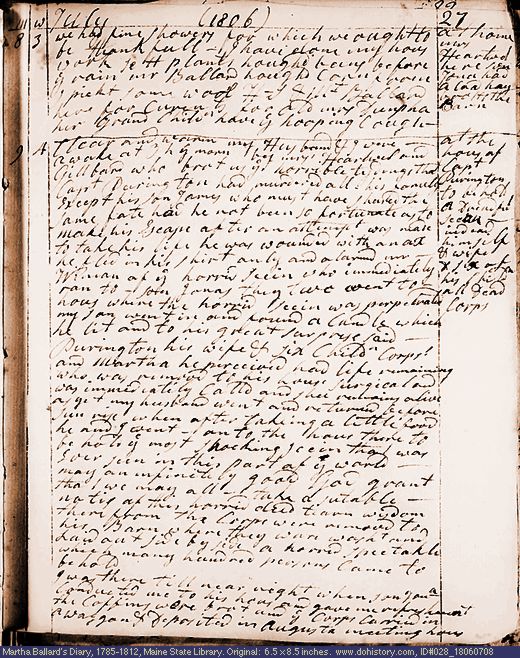 July (1806) 27
we had fine showers for which we ought to
be thankfull - I have done my hous
work & H plants houghd beans before
rain mr Ballard houghd Corn & beans
I pickt some wool
here for Currents
her Grand Childn have ye hooping Cough -
at home
9 4 Clear and warm my Husband & I were
awake at 3 h morn by mrs Heartwel and
Gillbard who brot us ye horrible tydings that
Capt Purington had murdered all his famely
Except his son James who must have shared the
same fate had he not been so fortunate as to
make his Escape after an attempt was made
to take his life he was wounded with an ax
he fled in his shirt only and alarmd mr
Wiman of ye horrid scein who immediately
ran to son Jonas they two went to
hous where the horrid scein was perpetrated
my son went in and found a Candle which
he lit and to his great surprise said
Purington his wife & six Childn Corps!
and Martha he perceived had life remaining
who was removd to his hous surgical aid
was immediately Calld and shee remains alive
as yet my husband went and returned before
sun rise when after taking a little food
he and I went on to the hous there to
behold ye most shocking scein that was
Ever seen in this part of ye world
may an infinitely good God grant
that we may all take a sutable
notis of this horrid deed learn wisdom
there from The Corps were removd to
his Barn where they were washt and
Laid out side by side a horrid spectakle
which many hundred persons Came to
behold
I was there till near night when son Jona
Conducted me to his hous and gave me refreshment
the Coffins were brot and ye Corps Carried in
a waggon & deposited in Augusta meeting hous
at the
hous of
Capt
Purington
to behold
himself
& wife
& six of
his Childn
all dead
Corps
Martha Ballard's Diary, 1785-1812, Maine State Library. Original: 6.5 x 8.5 inches. www.dohistory.com, ID#028_18060708